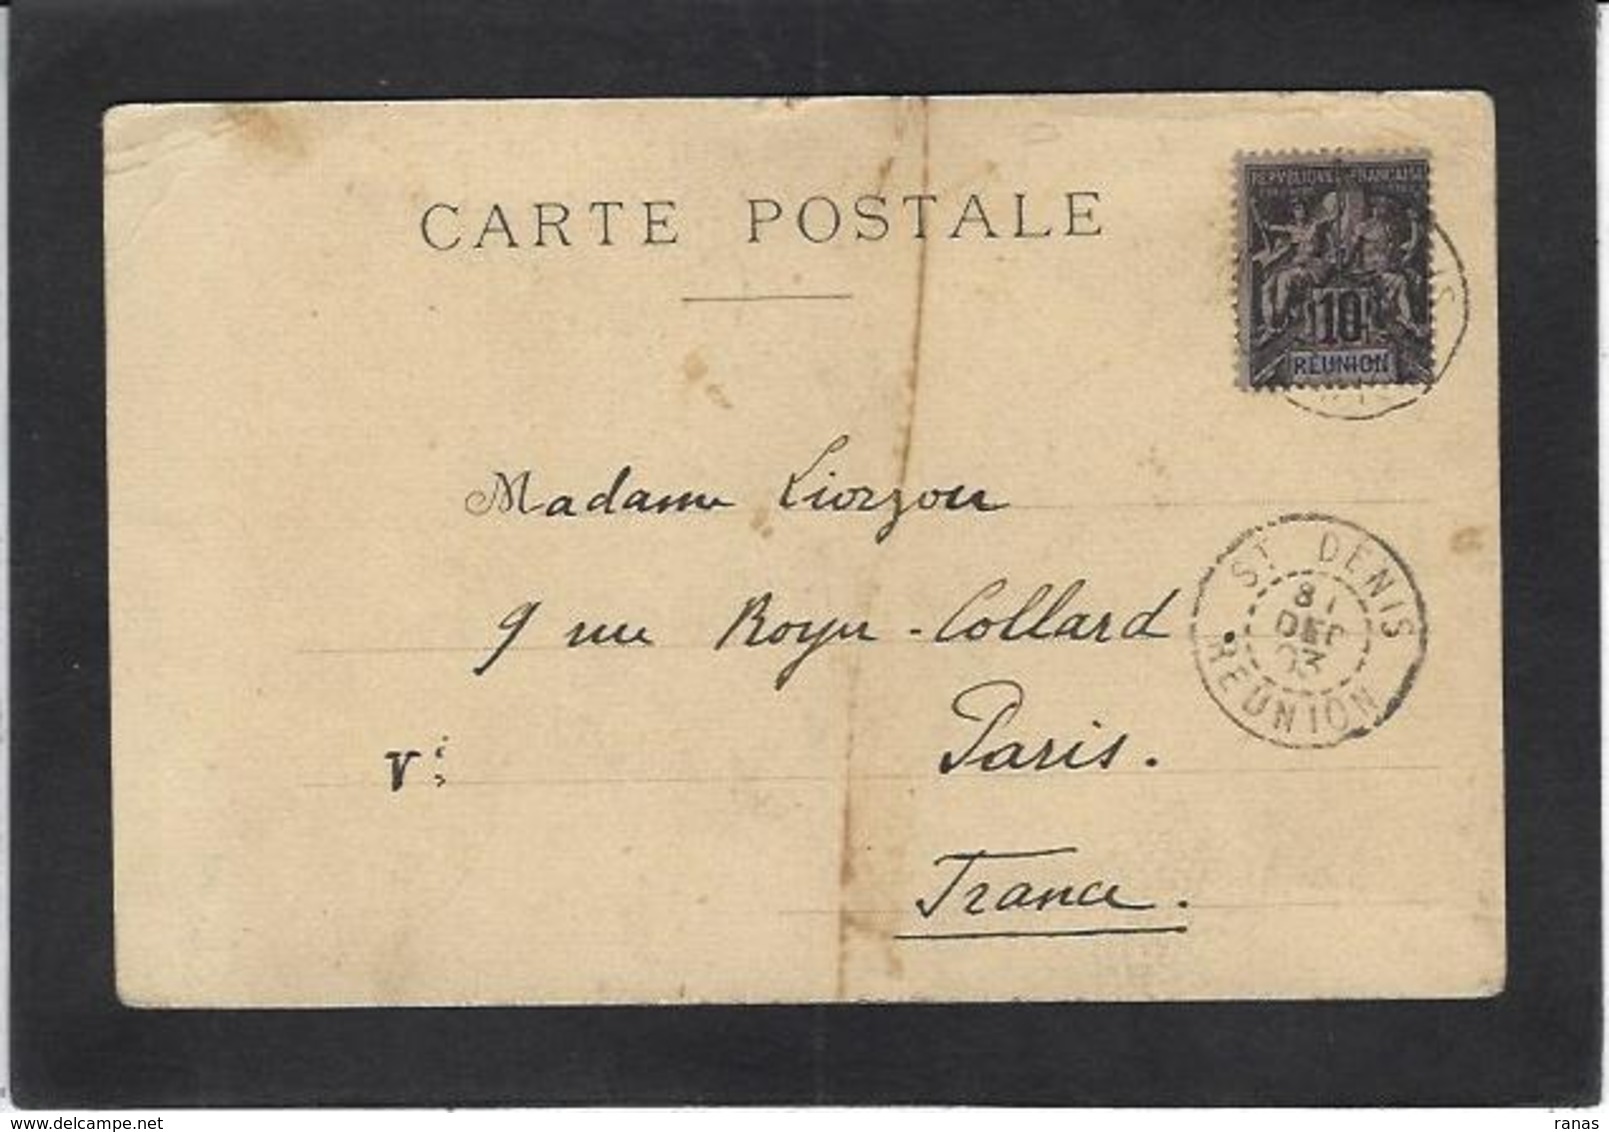 CARTE POSTALE
REPVBLIQUE FRANÇAISE
10
RÉUNION
Madame Liorzou
9 rue Royer-Collard
Paris.
France.
ST DENIS
DEC
03
RÉUNION
delcampe.net
ranas